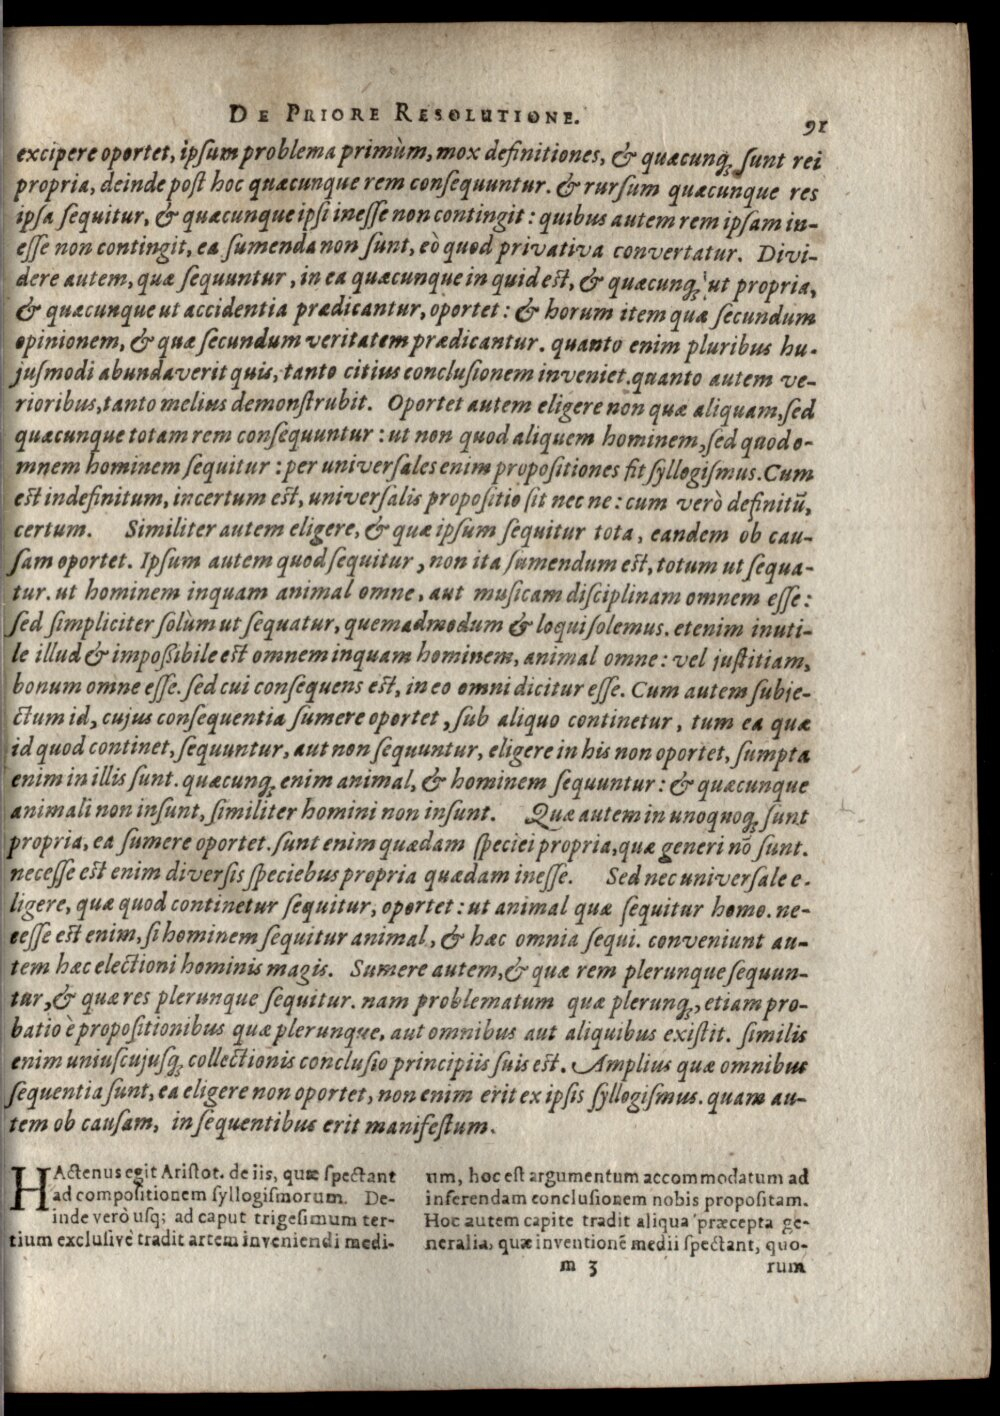 DE PRIORE RESOLUTIONE.
91
excipere oportet, ipsum problema primùm, mox definitiones, & quæcunq; sunt rei
propria, deinde post hoc quæcunque rem consequuntur. & rursum quæcunque res
ipsa sequitur, & quæcunque ipsi inesse non contingit: quibus autem rem ipsam in-
esse non contingit, ea sumenda non sunt, eò quod privativa convertatur. Divi-
dere autem, quæ sequuntur, in ea quæcunque in quid est, & quæcunq; ut propria,
& quæcunque ut accidentia prædicantur, oportet: & horum item quæ secundum
opinionem, & quæ secundum veritatem prædicantur. quanto enim pluribus hu-
jusmodi abundaverit quis, tanto citius conclusionem inveniet. quanto autem ve-
rioribus, tanto melius demonstrabit. Oportet autem eligere non quæ aliquam, sed
quæcunque totam rem consequuntur: ut non quod aliquem hominem, sed quod o-
mnem hominem sequitur: per universales enim propositiones fit syllogismus. Cum
est indefinitum, incertum est, universalis propositio sit nec ne: cum verò definitū,
certum. Similiter autem eligere, & quæ ipsum sequitur tota, eandem ob cau-
sam oportet. Ipsum autem quod sequitur, non ita sumendum est, totum ut sequa-
tur. ut hominem inquam animal omne, aut musicam disciplinam omnem esse:
sed simpliciter solùm ut sequatur, quemadmodum & loqui solemus. etenim inuti-
le illud & impossibile est omnem inquam hominem, animal omne: vel justitiam,
bonum omne esse. sed cui consequens est, in eo omni dicitur esse. Cum autem subje-
ctum id, cujus consequentia sumere oportet, sub aliquo continetur, tum ea quæ
id quod continet, sequuntur, aut non sequuntur, eligere in his non oportet, sumpta
enim in illis sunt. quæcunq; enim animal, & hominem sequuntur: & quæcunque
animali non insunt, similiter homini non insunt. Quæ autem in unoquoq; sunt
propria, ea sumere oportet. sunt enim quædam speciei propria, quæ generi nō sunt.
necesse est enim diversis speciebus propria quædam inesse. Sed nec universale e-
ligere, quæ quod continetur sequitur, oportet: ut animal quæ sequitur homo. ne-
cesse est enim, si hominem sequitur animal, & hæc omnia sequi. conveniunt au-
tem hæc electioni hominis magis. Sumere autem, & quæ rem plerunque sequun-
tur, & quæ res plerunque sequitur. nam problematum quæ plerunq;, etiam pro-
batio è propositionibus quæ plerunque, aut omnibus aut aliquibus existit. similis
enim uniuscujusq; collectionis conclusio principiis suis est. Amplius quæ omnibus
sequentia sunt, ea eligere non oportet, non enim erit ex ipsis syllogismus. quam au-
tem ob causam, in sequentibus erit manifestum.
HActenus egit Aristot. de iis, quæ spectant
ad compositionem syllogismorum. De-
inde verò usq; ad caput trigesimum ter-
tium exclusivè tradit artem inveniendi medi-
um, hoc est argumentum accommodatum ad
inferendam conclusionem nobis propositam.
Hoc autem capite tradit aliqua præcepta ge-
neralia, quæ inventionē medii spectant, quo-
m 3
rum